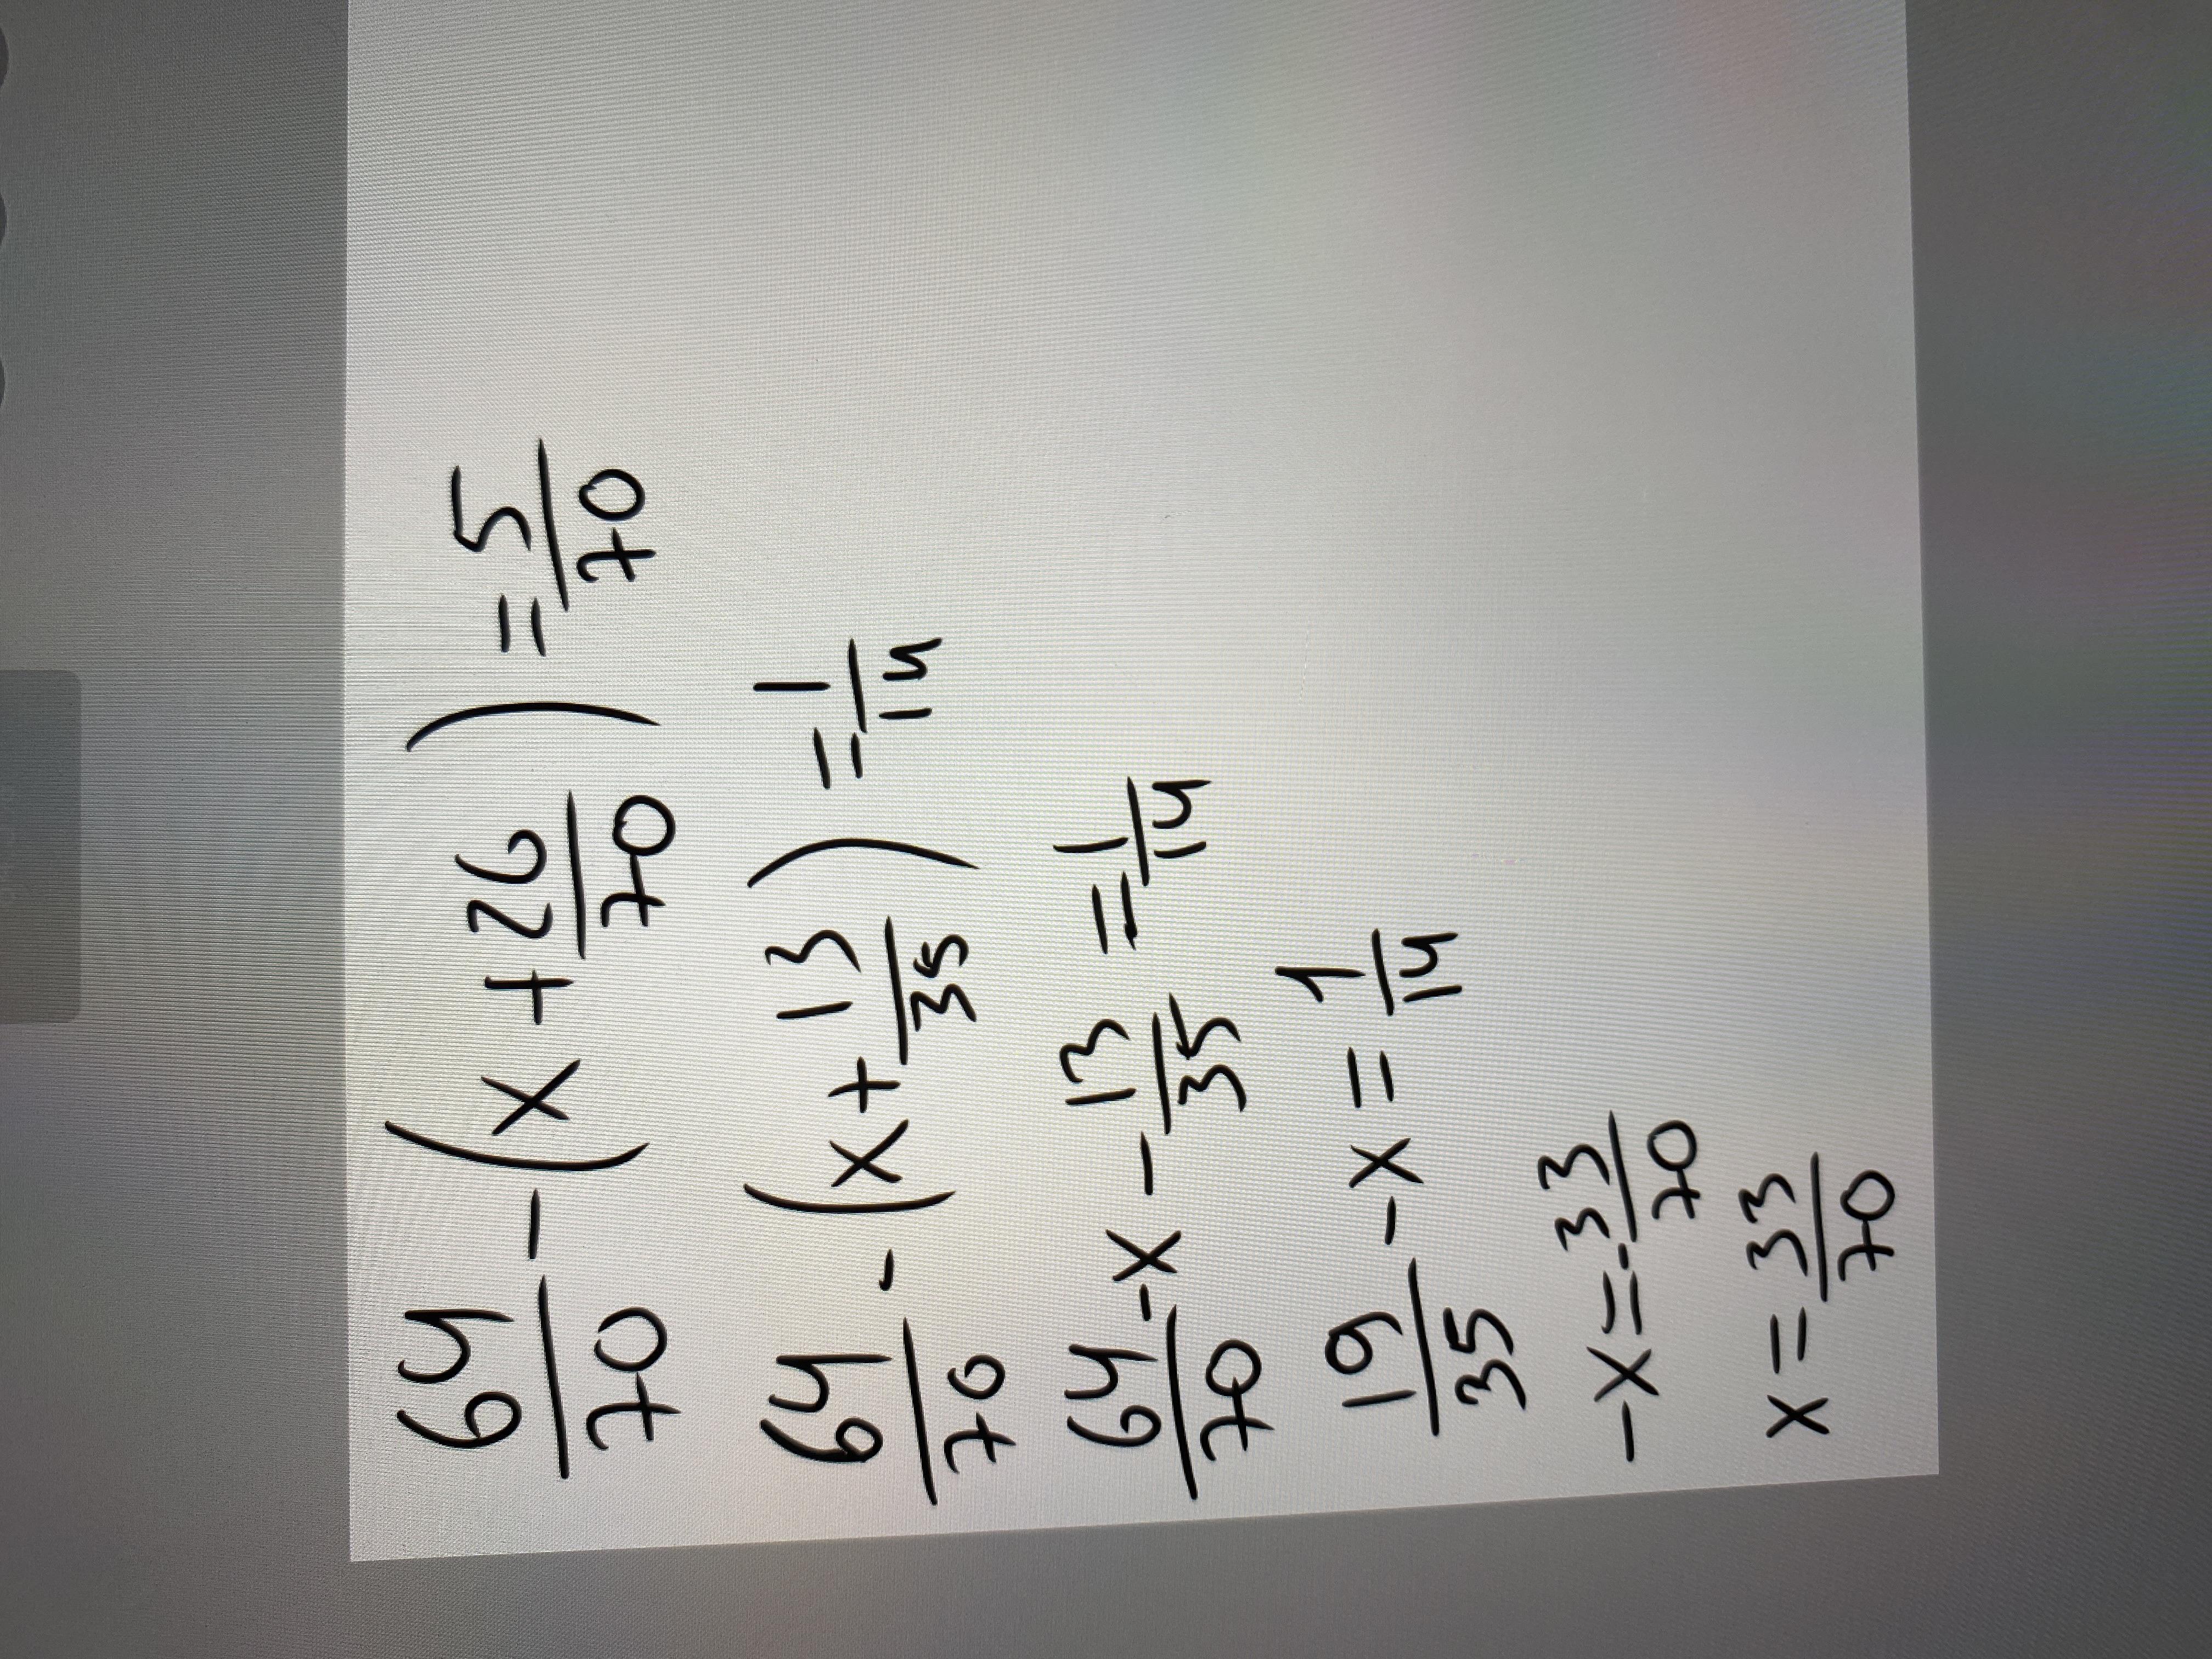 64/70 - (x + 26/70) = 5/70
64/70 - (x + 13/35) = 1/14
64/70 - x - 13/35 = 1/14
19/35 - x = 1/14
-x = -33/70
x = 33/70